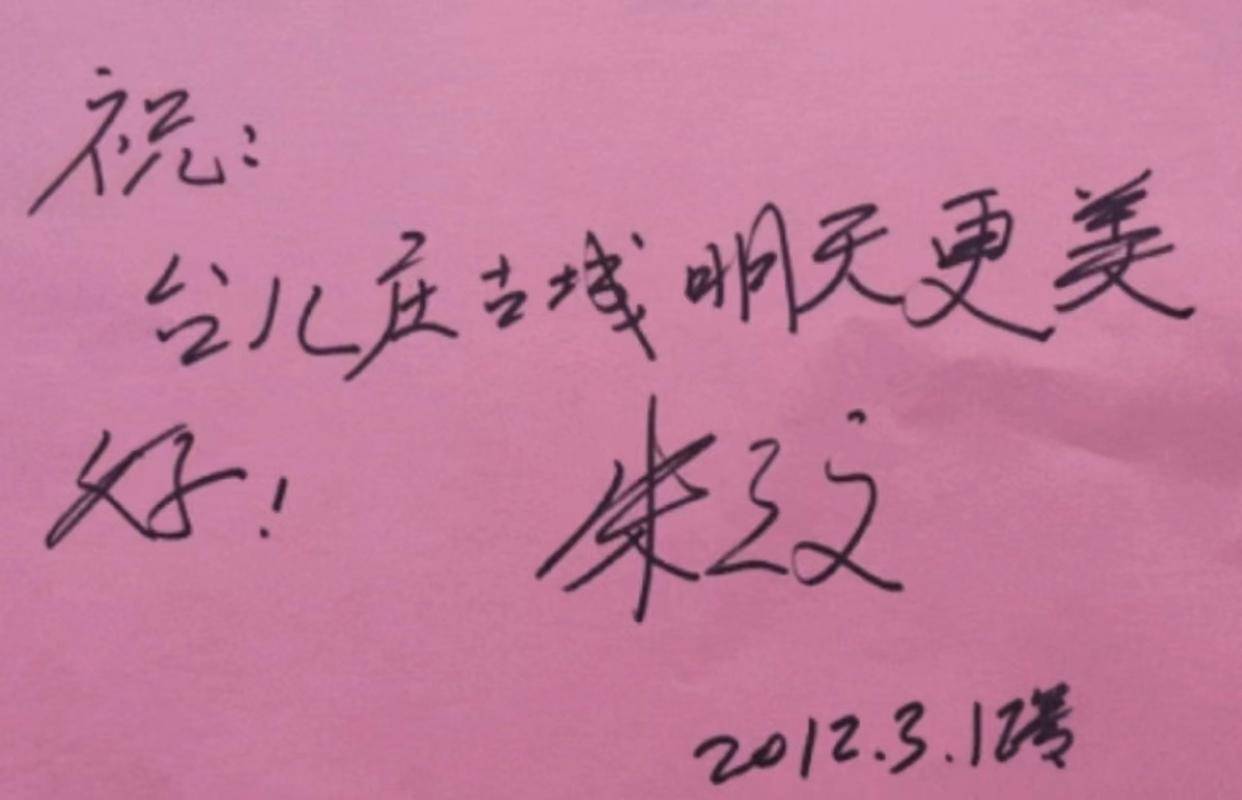 祝:
台儿庄古城明天更美
好! 朱之文
2012.3.12